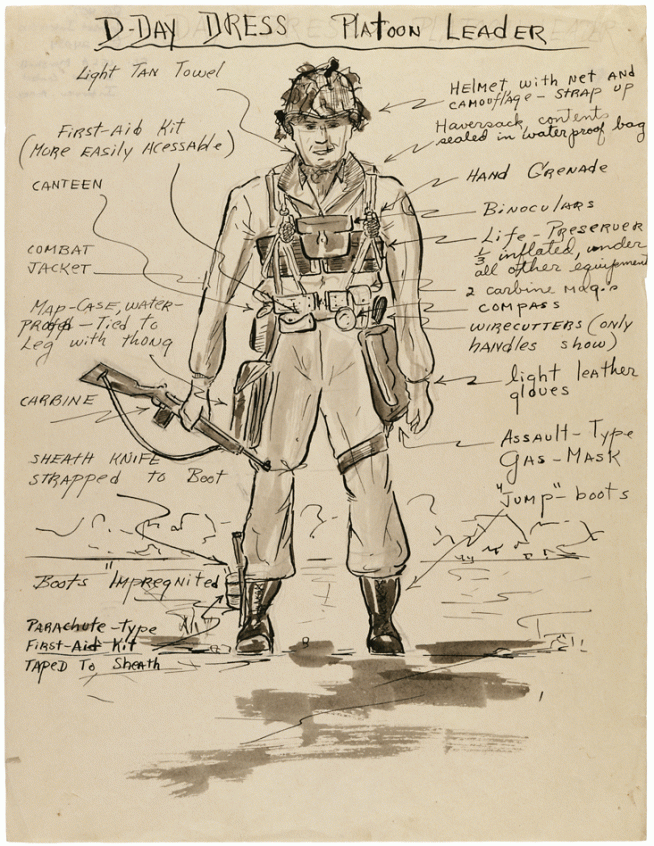 D-DAY DRESS PLATOON LEADER
Light TAN Towel
FIRST-AID KIT
(MORE EASILY ACESSABLE)
CANTEEN
COMBAT
JACKET
MAP-CASE, WATER-
PROOF - TIED TO
Leg with thong
CARBINE
SHEATH KNIFE
STRAPPED to Boot
Boots "Impregnited"
PARACHUTE-TYPE
FIRST-AID KIT
TAPED TO SHEATH
HELMET WITH NET AND
CAMOUFlAGE - STRAP UP
Haversack contents
sealed in waterproof bag
HAND GRENADE
BINOCULARS
Life-PRESERVER
1/3 inflated, under
all other equipment
2 carbine mag.s
COMPASS
WIRECUTTERS (only
handles show)
light leather
gloves
ASSAULT-TYPE
GAS-MASK
"Jump"-boots